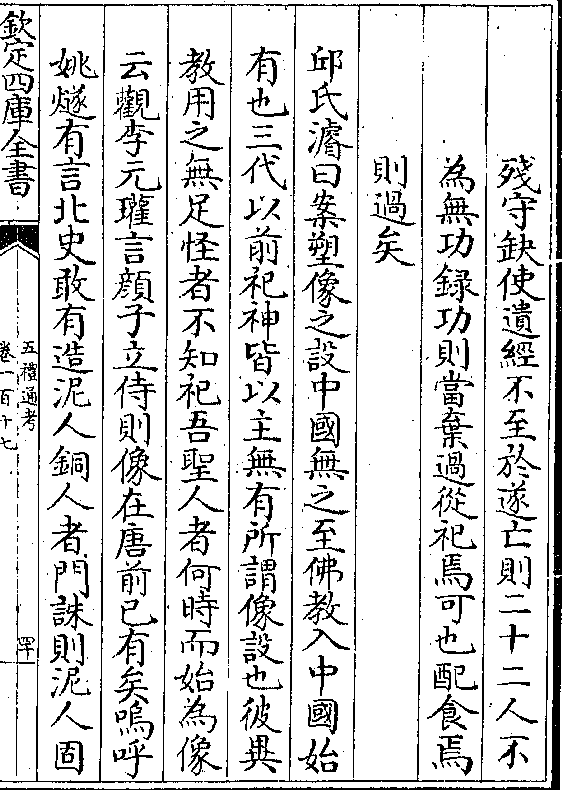 殘守缺使遺經不至於遂亡則二十二人不
為無功録功則當棄過從祀焉可也配食焉
則過矣
邱氏濬曰案塑像之設中國無之至佛教入中國始
有也三代以前祀神皆以主無有所謂像設也彼異
教用之無足怪者不知祀吾聖人者何時而始為像
云觀李元瓘言顔子立侍則像在唐前已有矣嗚呼
姚燧有言北史敢有造泥人銅人者門誅則泥人固
欽定四庫全書
五禮通考
卷一百十七
罕